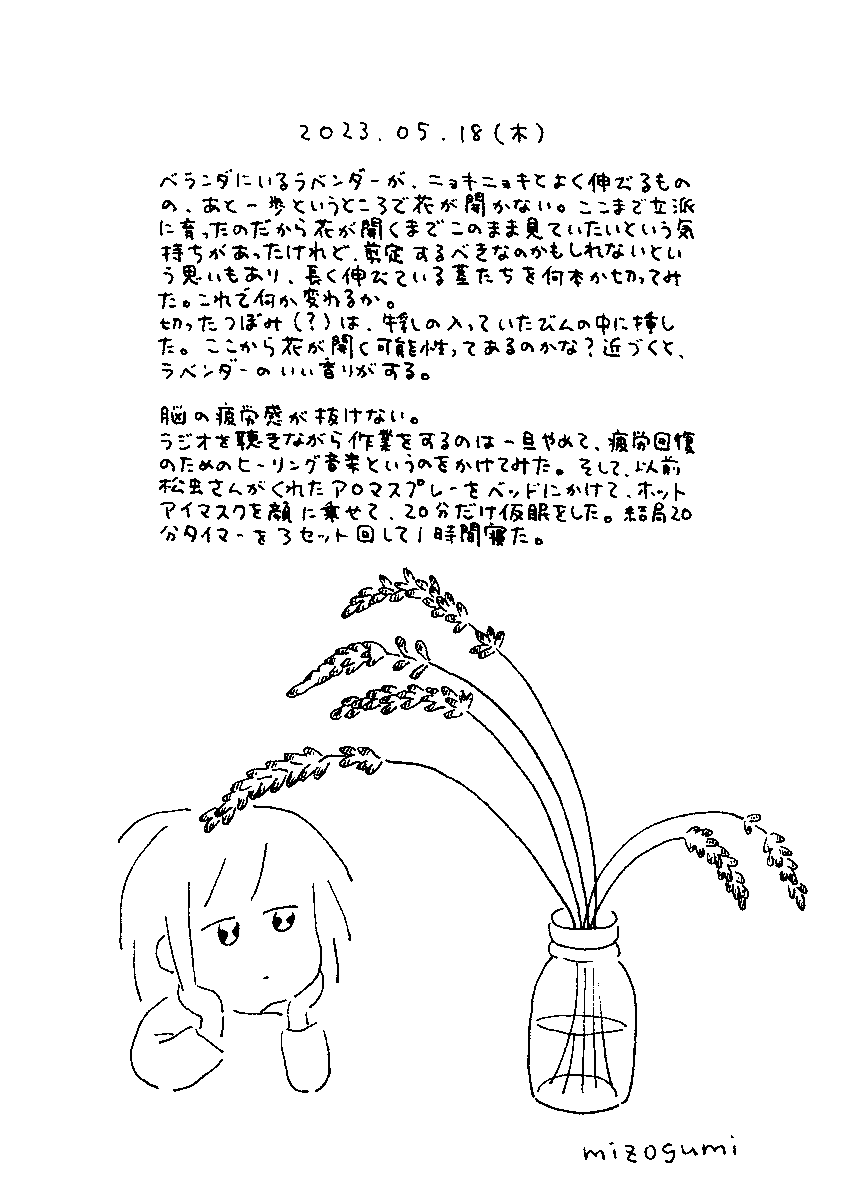 2023.05.18(木)
ベランダにいるラベンダーが、ニョキニョキとよく伸びるもの
の、あと一歩というところで花が開かない。ここまで立派
に育ったのだから花が開くまでこのまま見ていたいという気
持ちがあったけれど、剪定するべきなのかもしれないとい
う思いもあり、長く伸びている茎たちを何本か切ってみ
た。これで何か変わるか。
切ったつぼみ(?)は、牛乳の入っていたびんの中に挿し
た。ここから花が開く可能性ってあるのかな?近づくと、
ラベンダーのいい香りがする。
脳の疲労感が抜けない。
ラジオを聴きながら作業をするのは一旦やめて、疲労回復
のためのヒーリング音楽というのをかけてみた。そして、以前
松虫さんがくれたアロマスプレーをベッドにかけて、ホット
アイマスクを顔に乗せて、20分だけ仮眠をした。結局20
分タイマーを3セット回して1時間寝た。
mizogumi